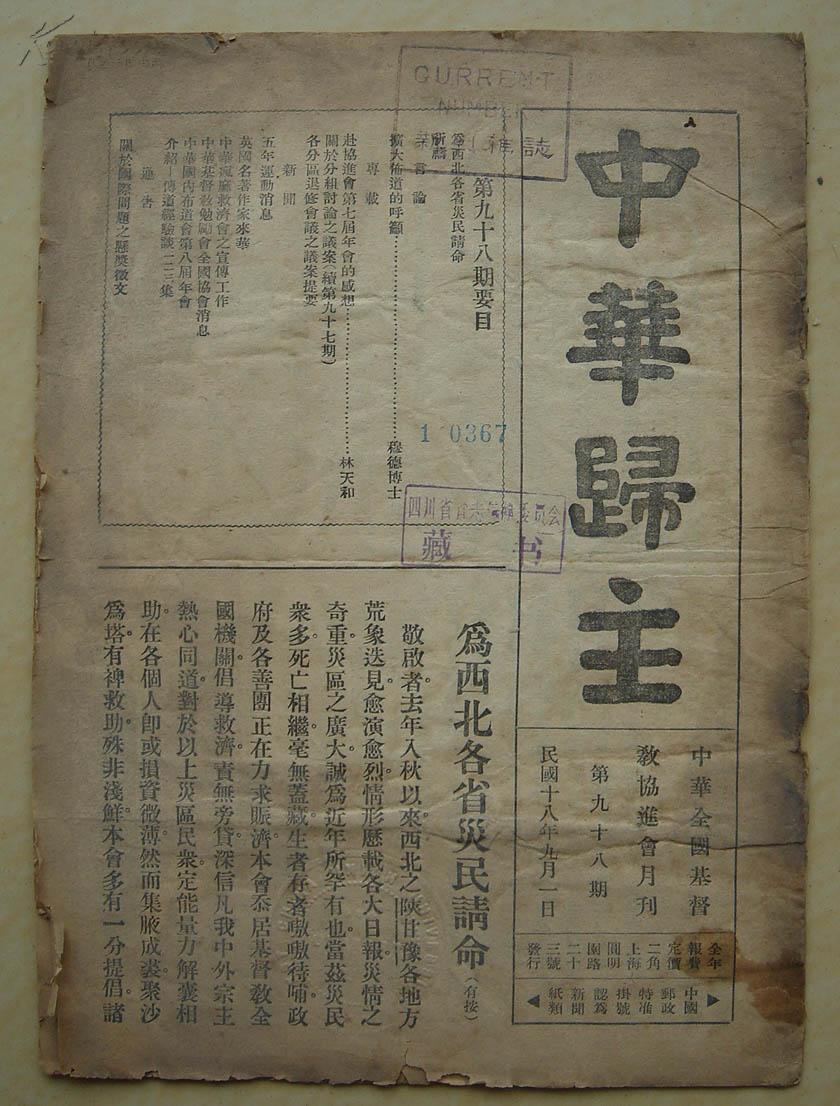 中華歸主
中華全國基督
教協進會月刊
第九十八期
民國十八年九月一日
全年
報費
定價
二角
上海
圓明
園路
二十
三號
發行
中國
郵政
特准
掛號
認爲
新聞
紙類
CURRENT
NUMBER
雜誌
第九十八期要目
爲西北各省災民請命
言論
擴大佈道的呼籲……穆德博士
專載
赴協進會第七屆年會的感想……林天和
關於分組討論之議案(續第九十七期)
各分區退修會議之議案提要
新聞
五年運動消息
英國名著作家來華
中華痲瘋救濟會之宣傳工作
中華基督教勉勵會全國協會消息
中華國內布道會第八屆年會
介紹—傳道經驗談一二三集
關於國際問題之懸奬徵文
1 0367
四川省
藏书
爲西北各省災民請命(有按)
敬啟者去年入秋以來西北之陝甘豫各地方
荒象迭見愈演愈烈情形歷載各大日報災情之
奇重災區之廣大誠爲近年所罕有也當茲災民
衆多死亡相繼毫無蓋藏生者存者嗷嗷待哺政
府及各善團正在力求賑濟本會忝居基督教全
國機關倡導救濟責無旁貸深信凡我中外宗主
熱心同道對於以上災區民衆定能量力解囊相
助在各個人卽或損資微薄然而集腋成裘聚沙
爲塔有裨救助殊非淺鮮本會多有一分提倡諸